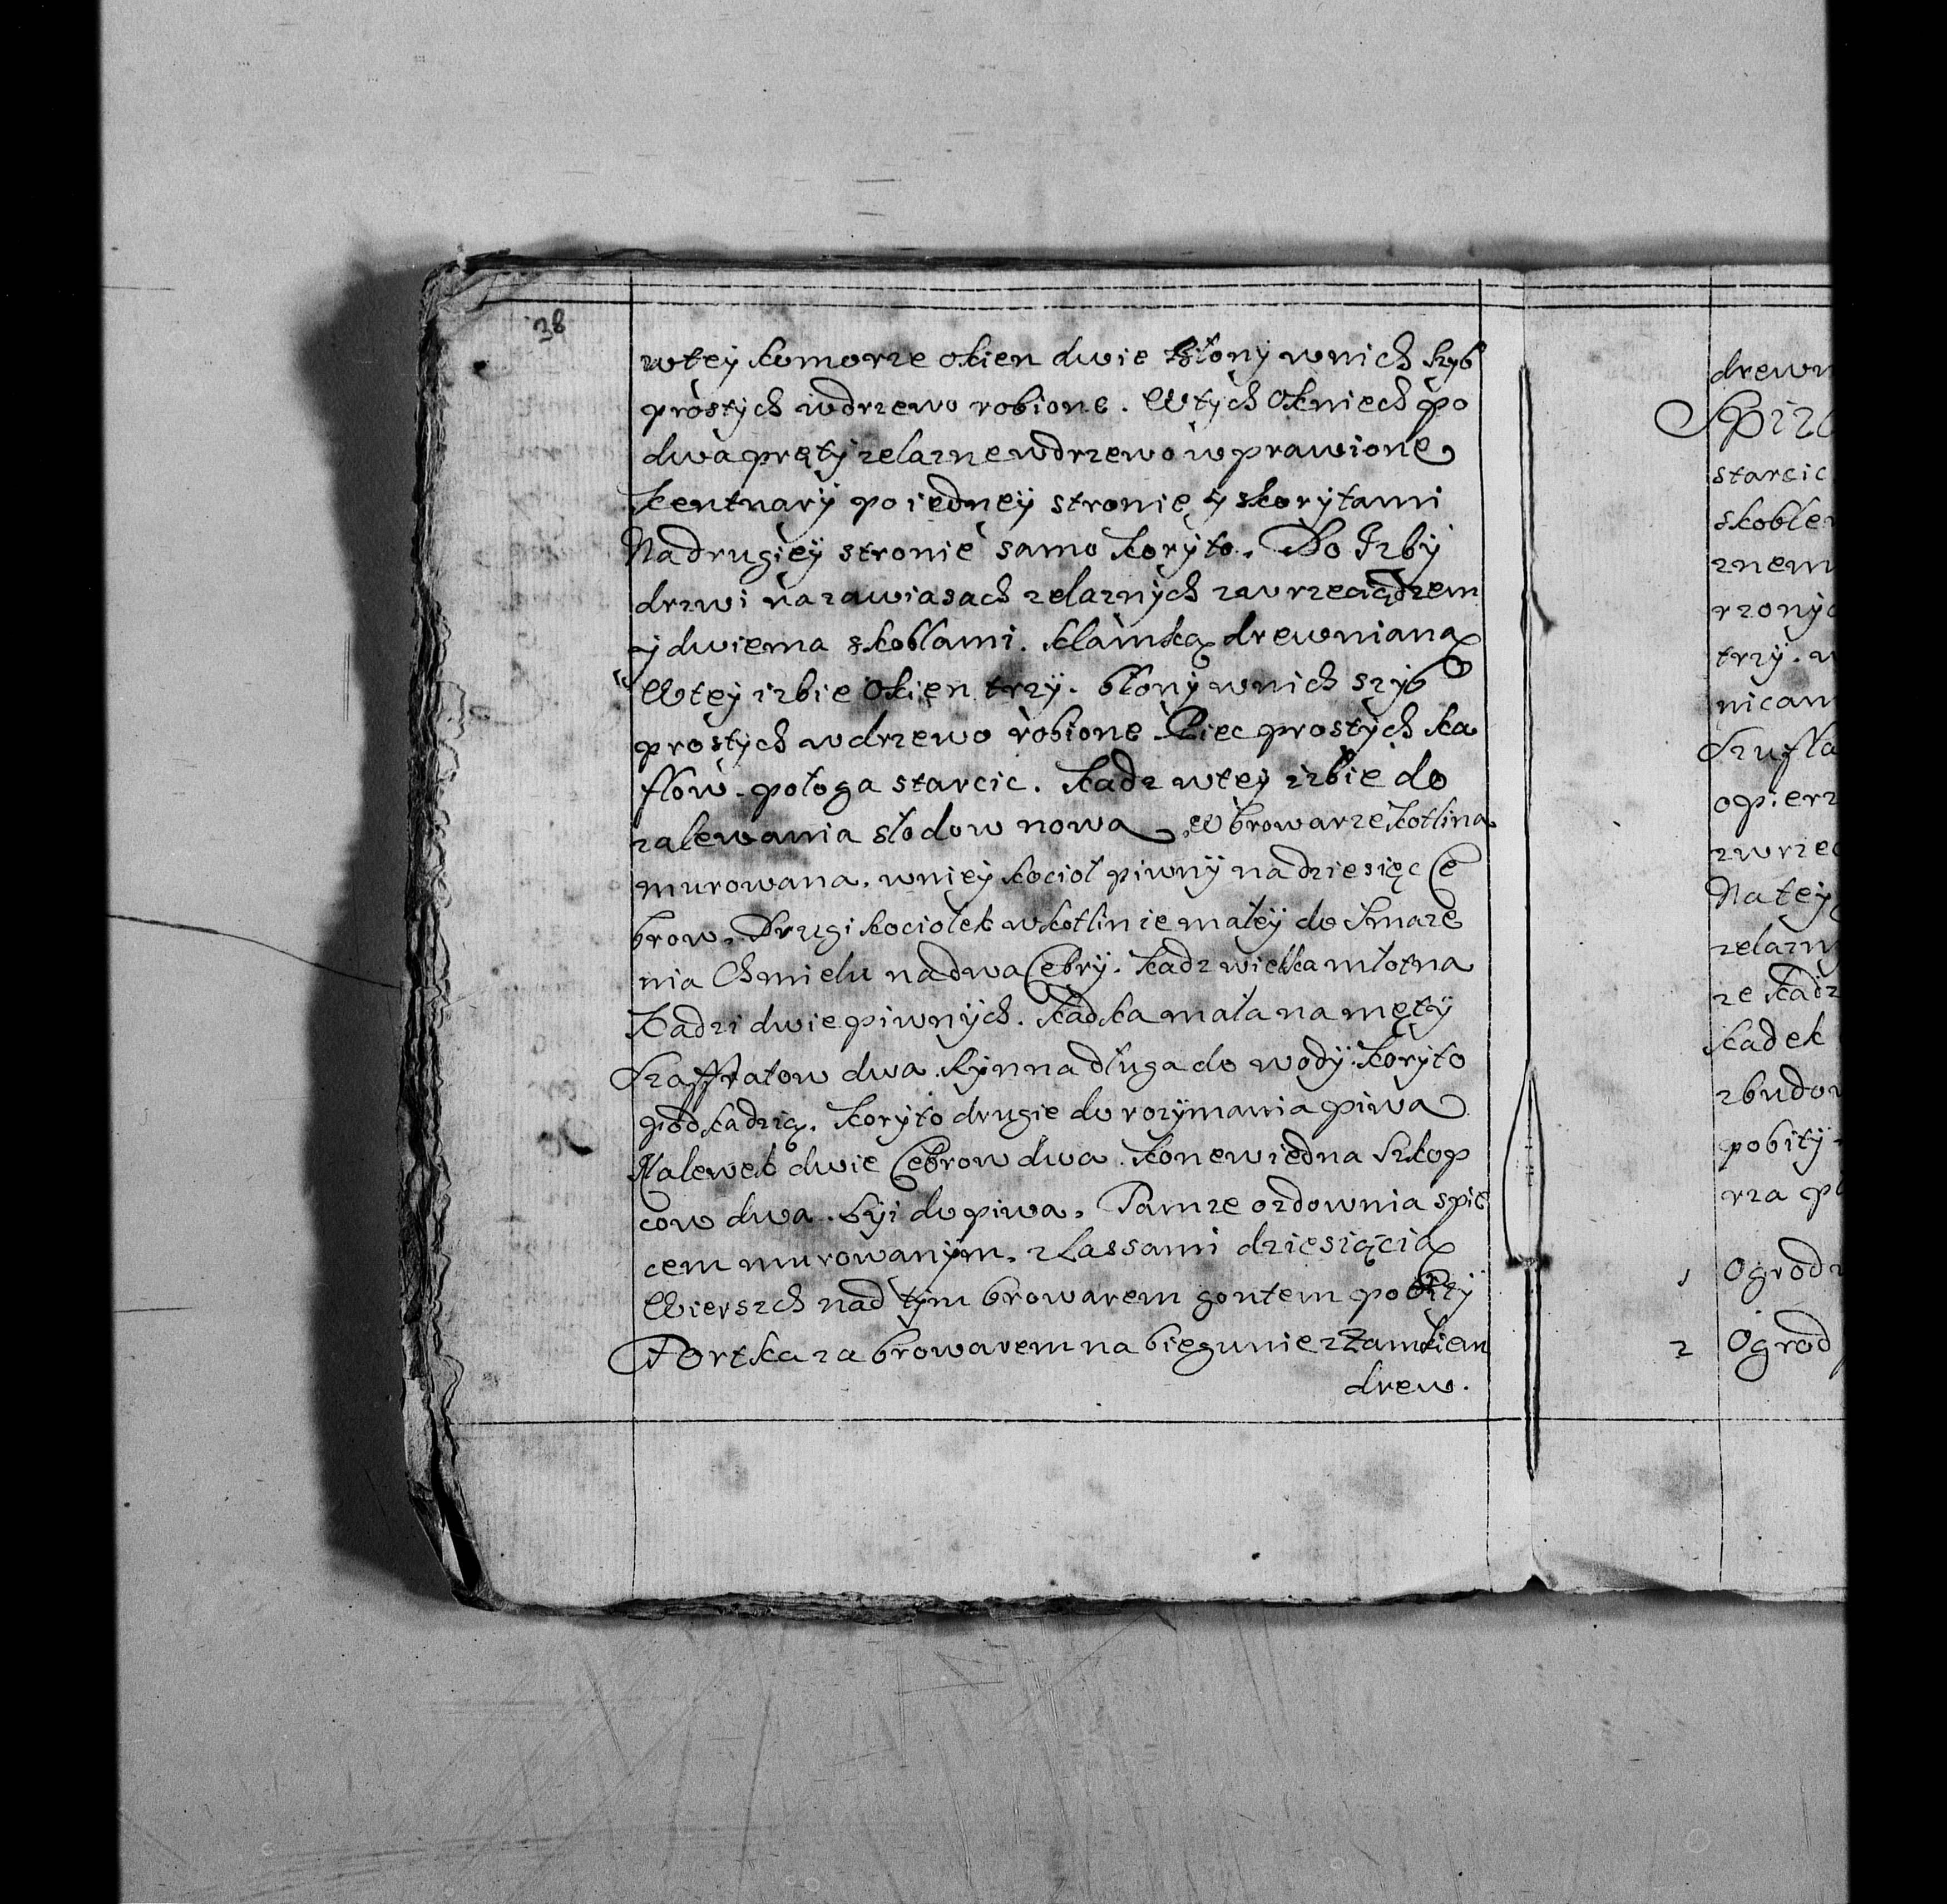 38
wtey komorze okien dwie błony wnich szyb
prostych wdrzewo robione. Wtych Okniech po
dwa pręty zelazne wdrzewo wprawione
Kentnary po iedney stronie y skorytami
Na drugiey stronie samo koryto. Do Izby
drzwi na zawiasach zelaznych zwrzeciądzem
y dwiema skoblami. klamką drewnianą
Wtey izbie Okien trzy. błony wnich szyb
prostych wdrzewo robione Piec prostych ka
flow. połoga starcic. Kadz wtey izbie do
zalewania słodow nowa. W browarze kotlina
murowana. wniey kocioł piwny na dziesięc Ce
brow. Drugi kociołek wkotlinie małey do smaze
nia Chmielu na dwa Cebry. Kadz wielka młotna
Kadzi dwie piwnych. Kadka mała na męty
Szafflatow dwa. Rynna długa do wody. Koryto
pod kadzią. Koryto drugie do rozymania piwa
Nalewek dwie Cebrow dwa. Konew iedna Szkop
cow dwa. Lyi do piwa. Tamze ozdownia spie
cem murowanym. zlassami dziesiącią
Wierszch nad tym browarem gontem pobity
Fortka za browarem na biegunie zzamkiem
drew.
drewn
Spiz
starcic
skoble
znem
rzony
trzy. w
nicam
Szufla
opierz
zwrzec
Na tey
zelazn
ze kadz
kadek
zbudow
pobity
rza p
1 Ogrod
2 Ogrod